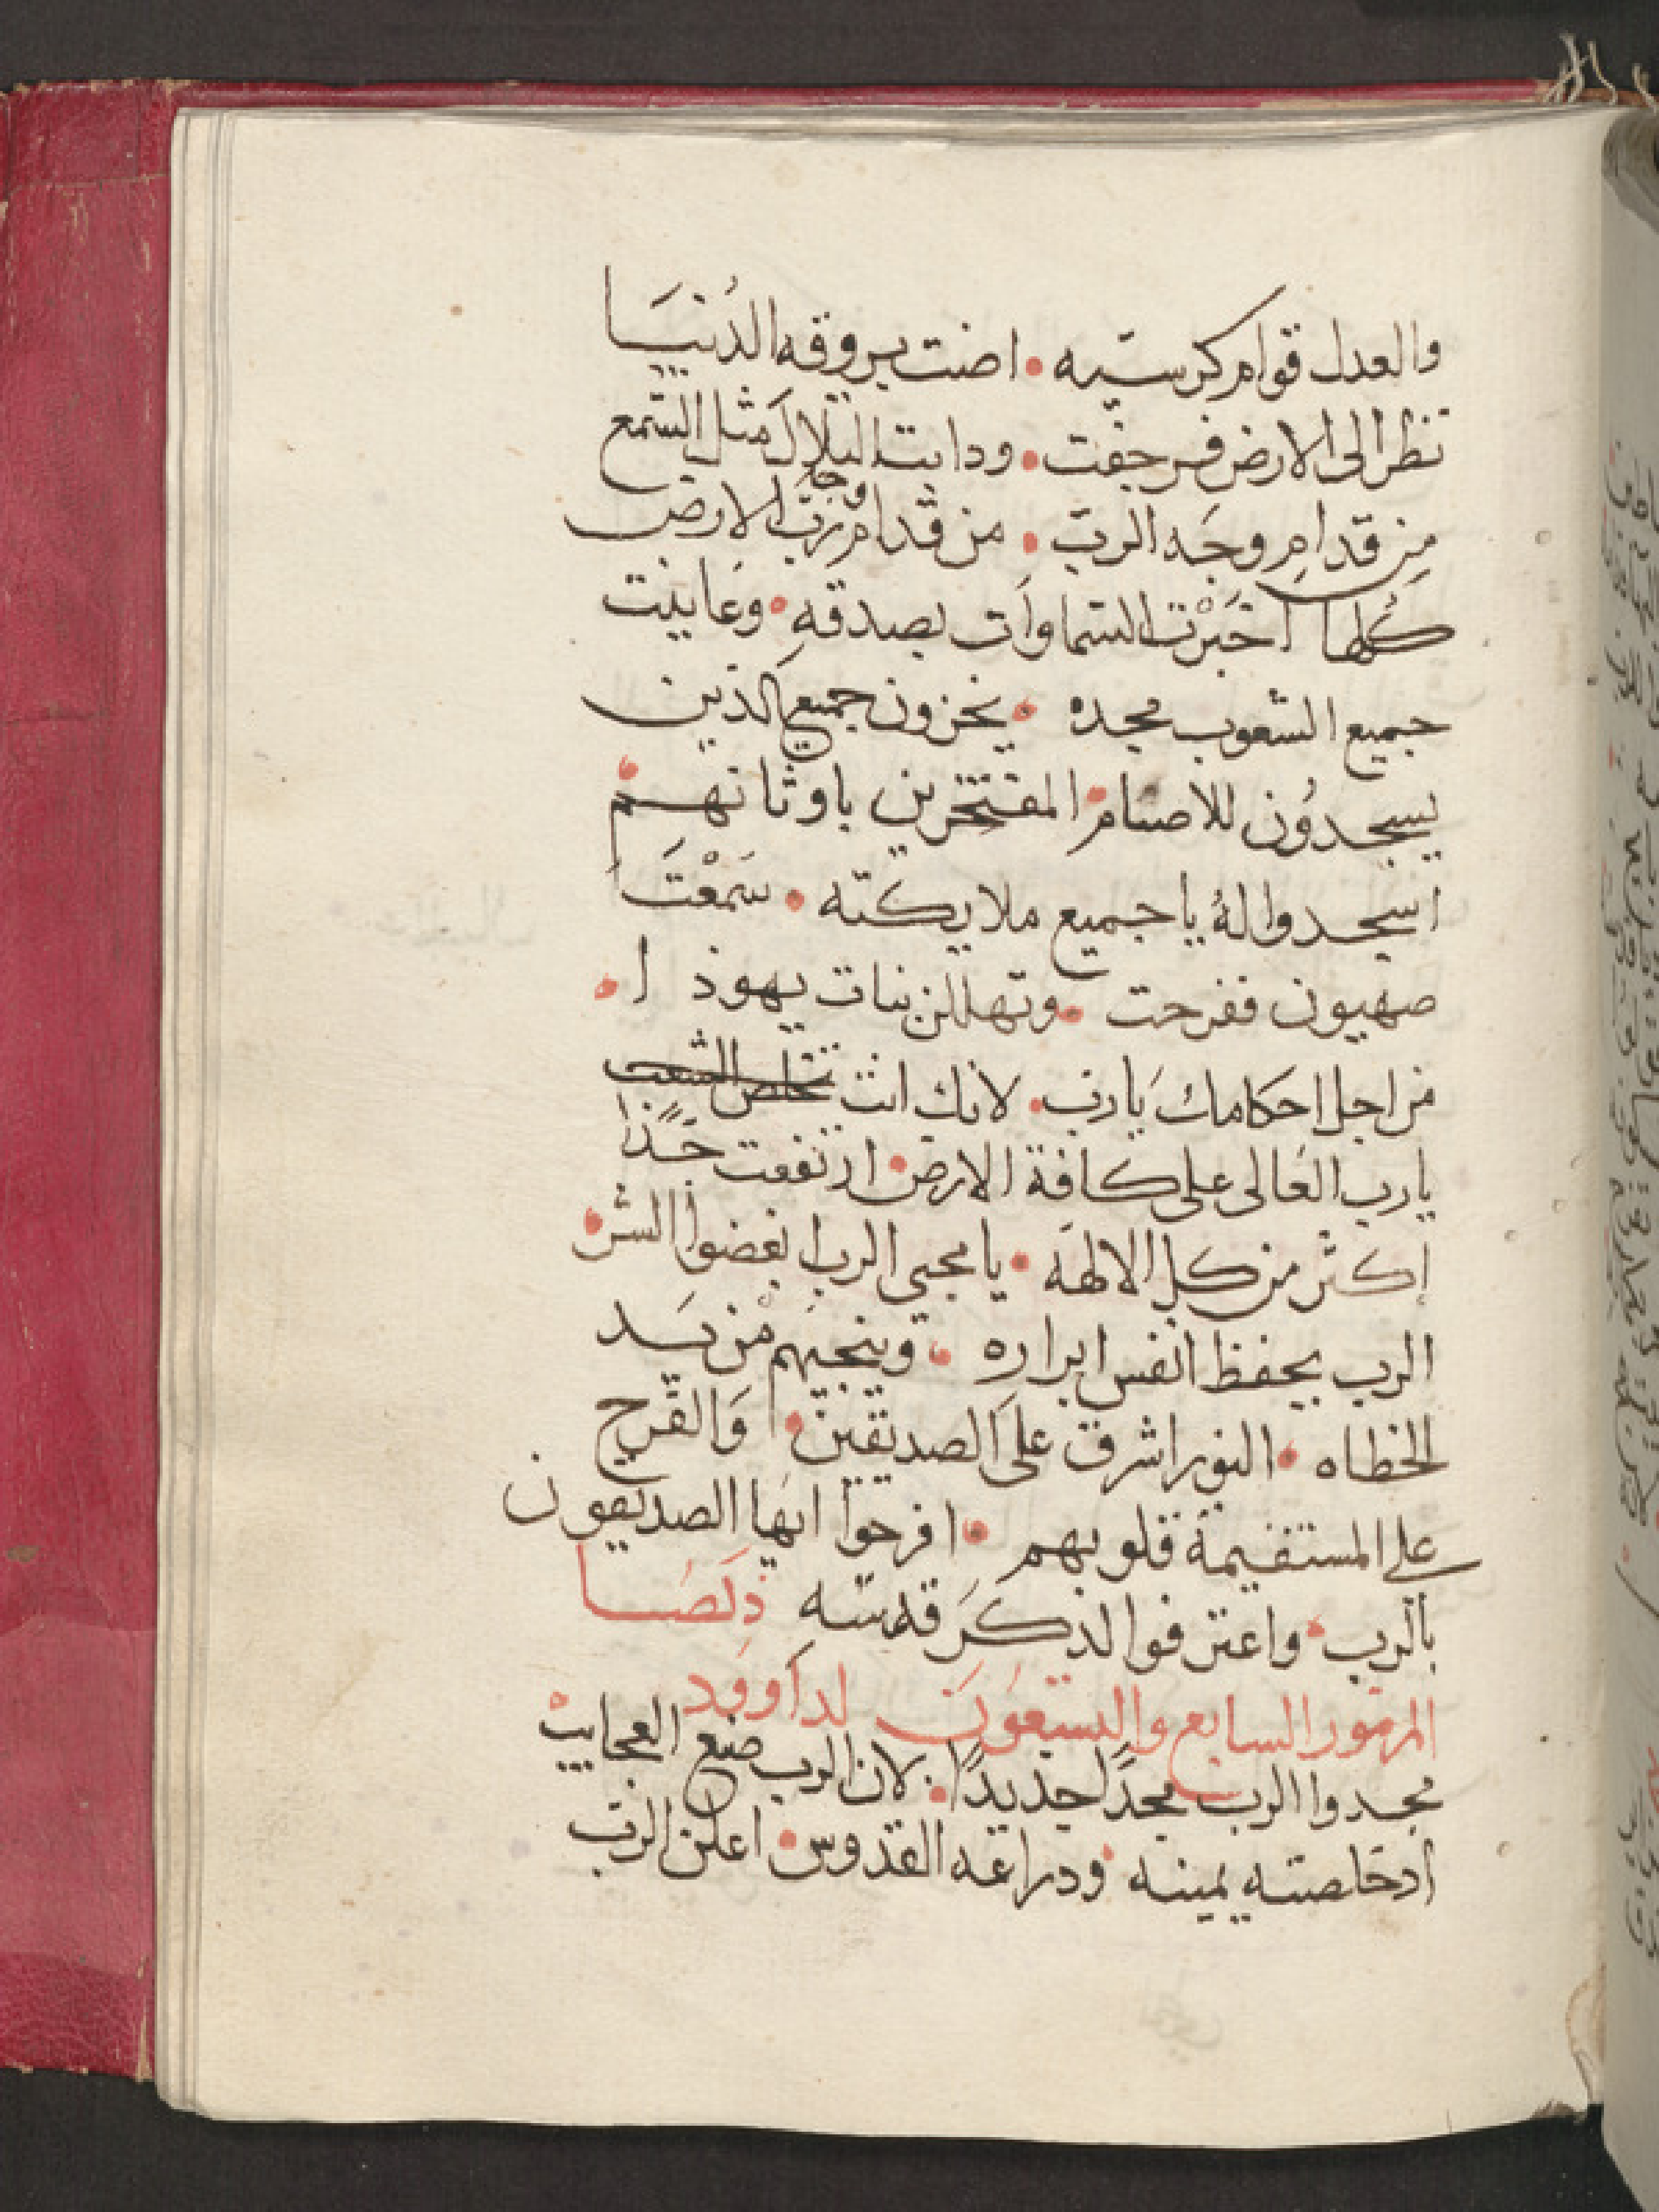 والعدل قوام كرسيه • اضت بروقه الدُنيَا
تظر الى الارض فرجفت • ودابت الجبال مثل الشمع
مِن قدام وجَه الربّ • من قدام وجه ربّ الارض
كُلها اخبَرْت السماوات بصدقهِ • وعَاينت
جميع الشعوب مجده • يخزون جميع الذين
يسجدُون للاصنام • المفتخرين باوثانهم •
اسجدوا لهُ يا جميع ملايكته • سَمعْتَ
صهيون ففرحت • وتهللن بنات يهوذا •
من اجل احكامك يَارب • لانك انت تخلص الشعب
يارب العَالى على كافة الارض • ارتفعت جدًا
اكثر من كل الالهَه • يا محبي الرب ابغضوا الشر •
الرب يحفظ انفس ابراره • وينجيهم من يَد
الخطاه • النور اشرق علىَ الصديقين • وَالفرح
على المستقيمة قلوبهم • افرحوا ايهَا الصديقون
بالرب • واعترفوا لذكرَ قدسه
المزمور السابع والتسعون لداوود
مجدوا الرب مجدًا جديدًا • لان الرب صنع العجايب
اذ خلصته يمينه • ودراعه القدوس • اعلن الرب